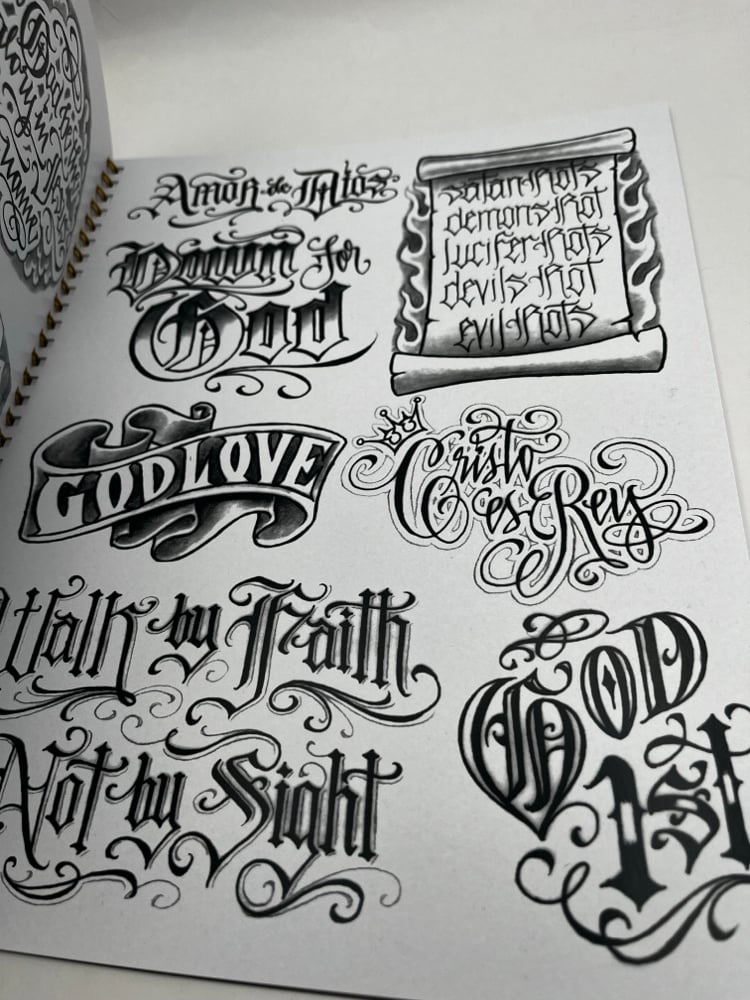 Amor de Dios
Down for
God
satan·Rots
demons·Rot
lucifer·Rots
devils·Rot
evil·Rots
GOD LOVE
Cristo
es Rey
Walk by Faith
Not by Sight
GOD
1st